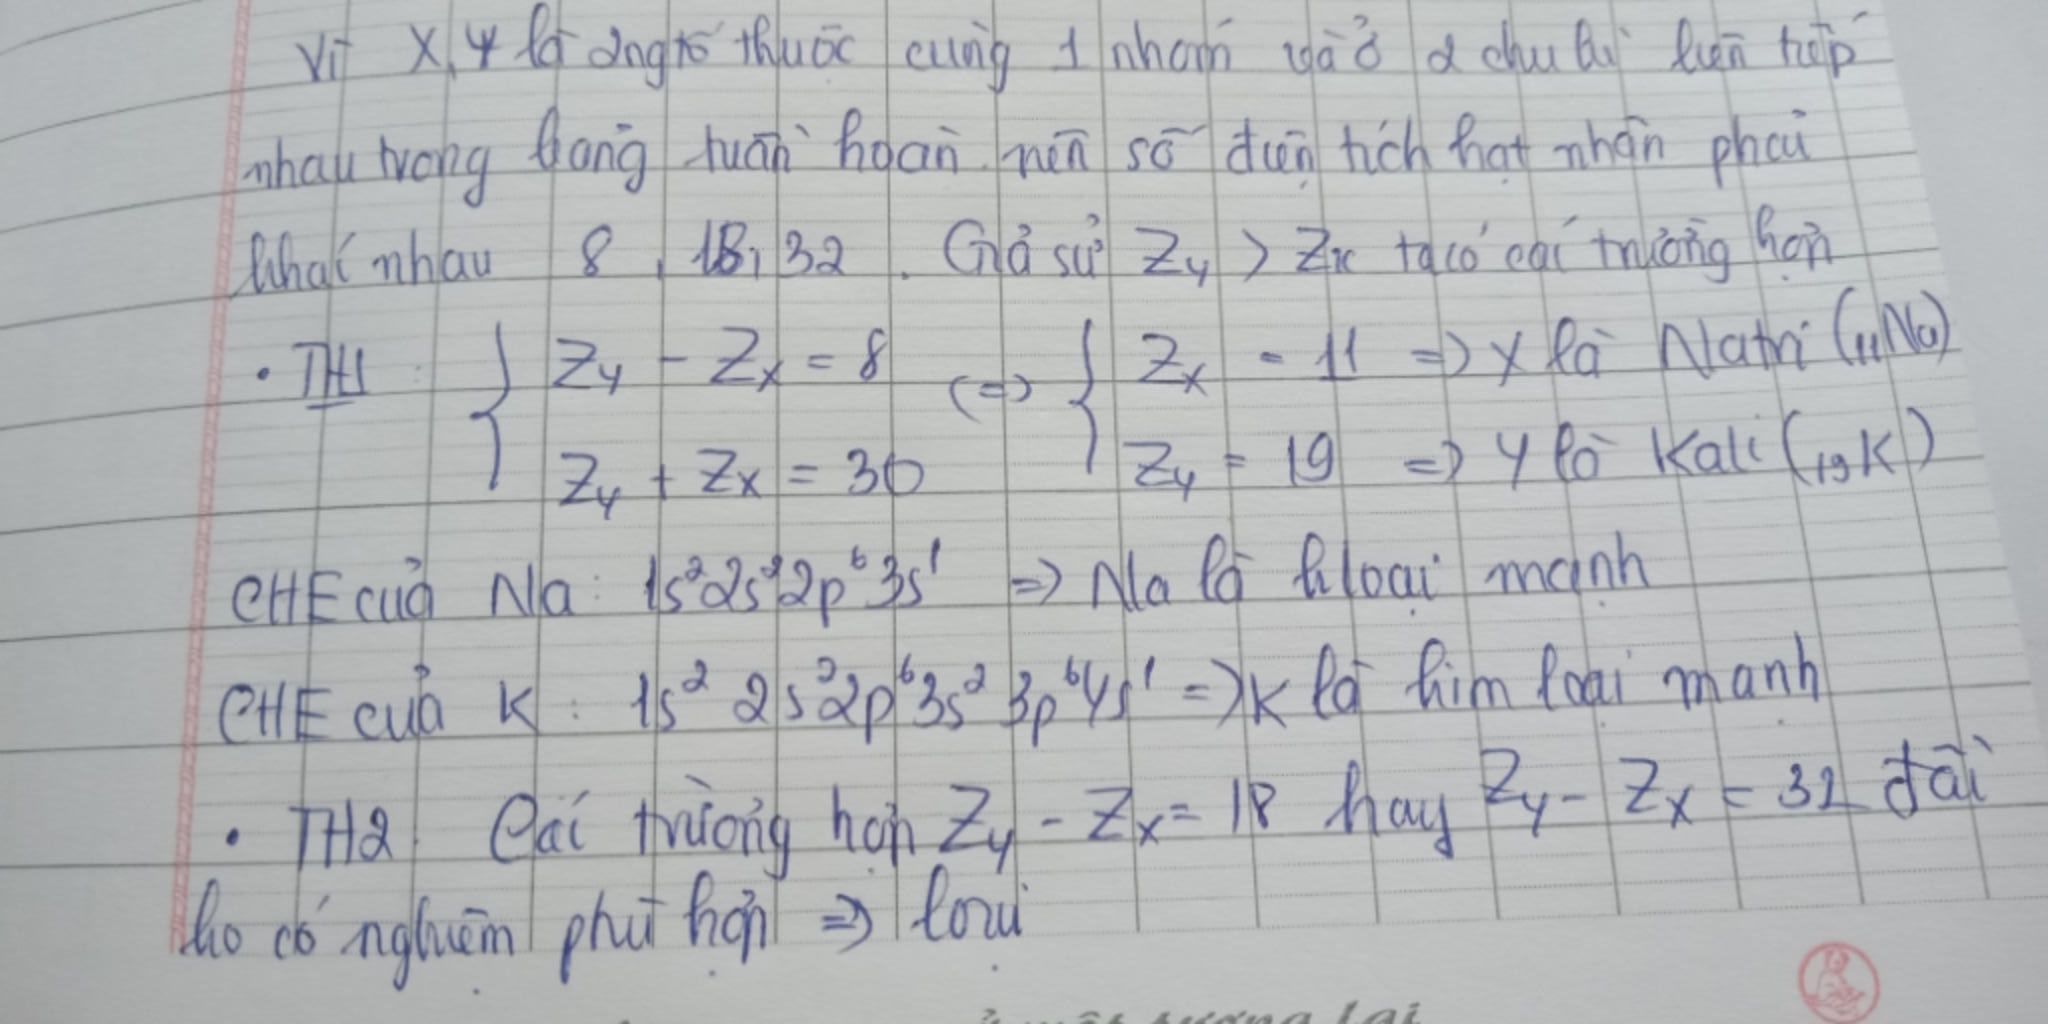 Vì X, Y là 2 ngtố thuộc cùng 1 nhóm và ở 2 chu kì liên tiếp
nhau trong bảng tuần hoàn nên số điện tích hạt nhân phải
khác nhau 8, 18, 32. Giả sử Z_Y > Z_X ta có các trường hợp
• TH1: { Z_Y - Z_X = 8 (=> { Z_X = 11 => X là Natri (₁₁Na)
Z_Y + Z_X = 30 Z_Y = 19 => Y là Kali (₁₉K)
CHE của Na: 1s²2s²2p⁶3s¹ => Na là kloại mạnh
CHE của K: 1s² 2s²2p⁶3s² 3p⁶4s¹ => K là kim loại mạnh
• TH2: Các trường hợp Z_Y - Z_X = 18 hay Z_Y - Z_X = 32 đều
ko có nghiệm phù hợp => loại